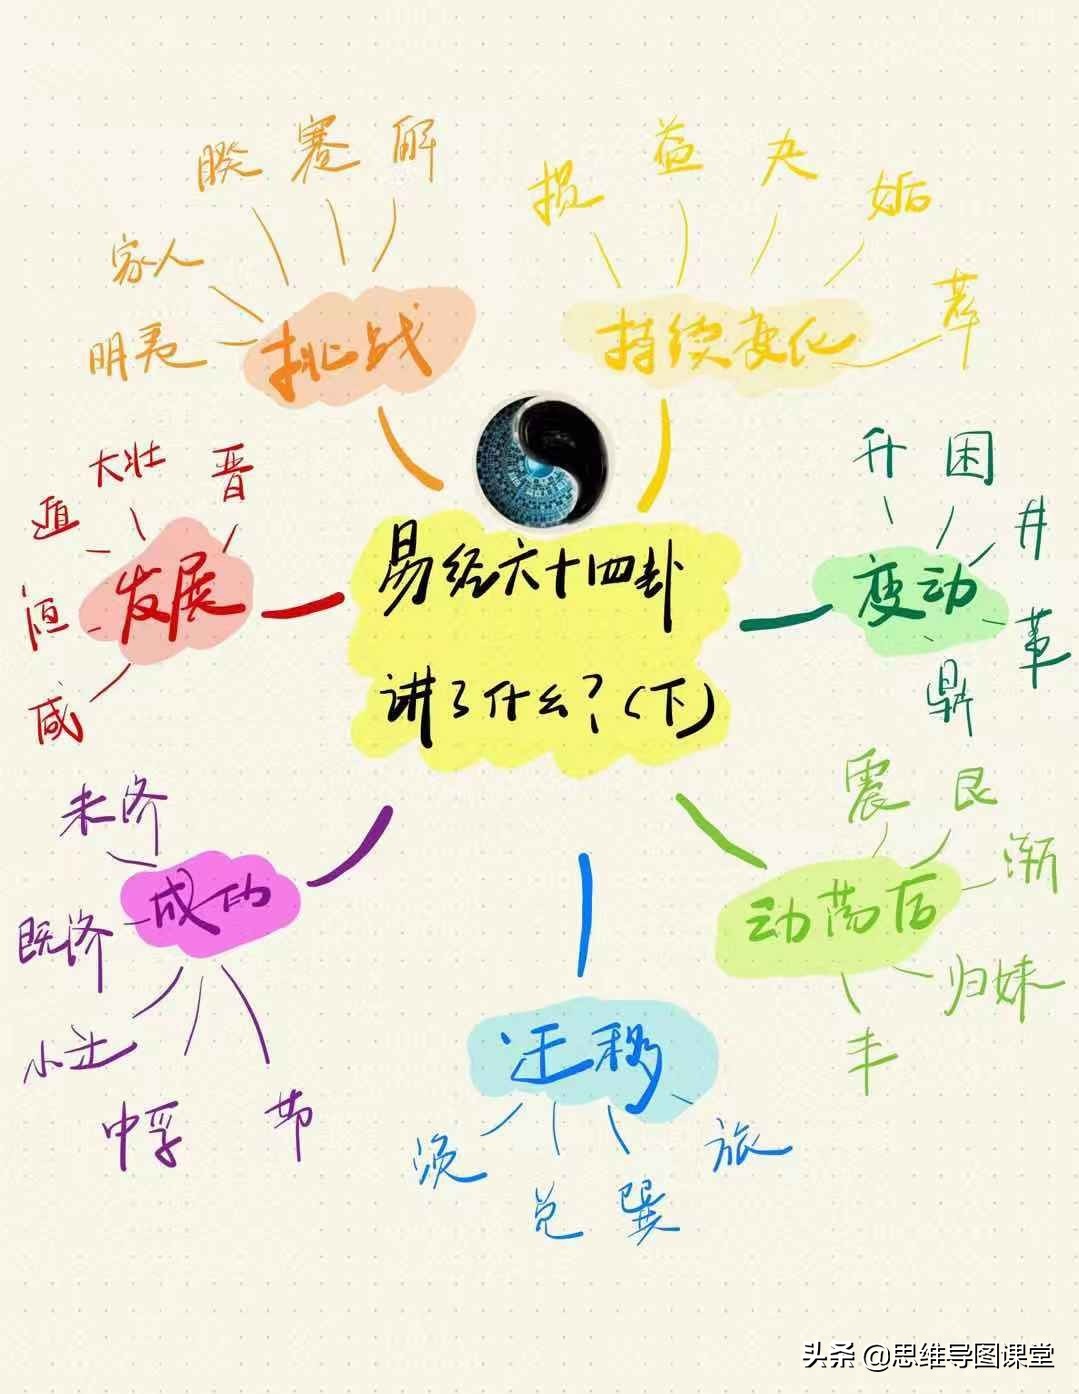 易经六十四卦
讲了什么?(下)
发展
咸
恒
遁
大壮
晋
挑战
明夷
家人
睽
蹇
解
持续变化
损
益
夬
姤
萃
变动
升
困
井
革
鼎
动荡后
震
艮
渐
归妹
丰
迁移
旅
巽
兑
涣
成功
节
中孚
小过
既济
未济
头条 @思维导图课堂